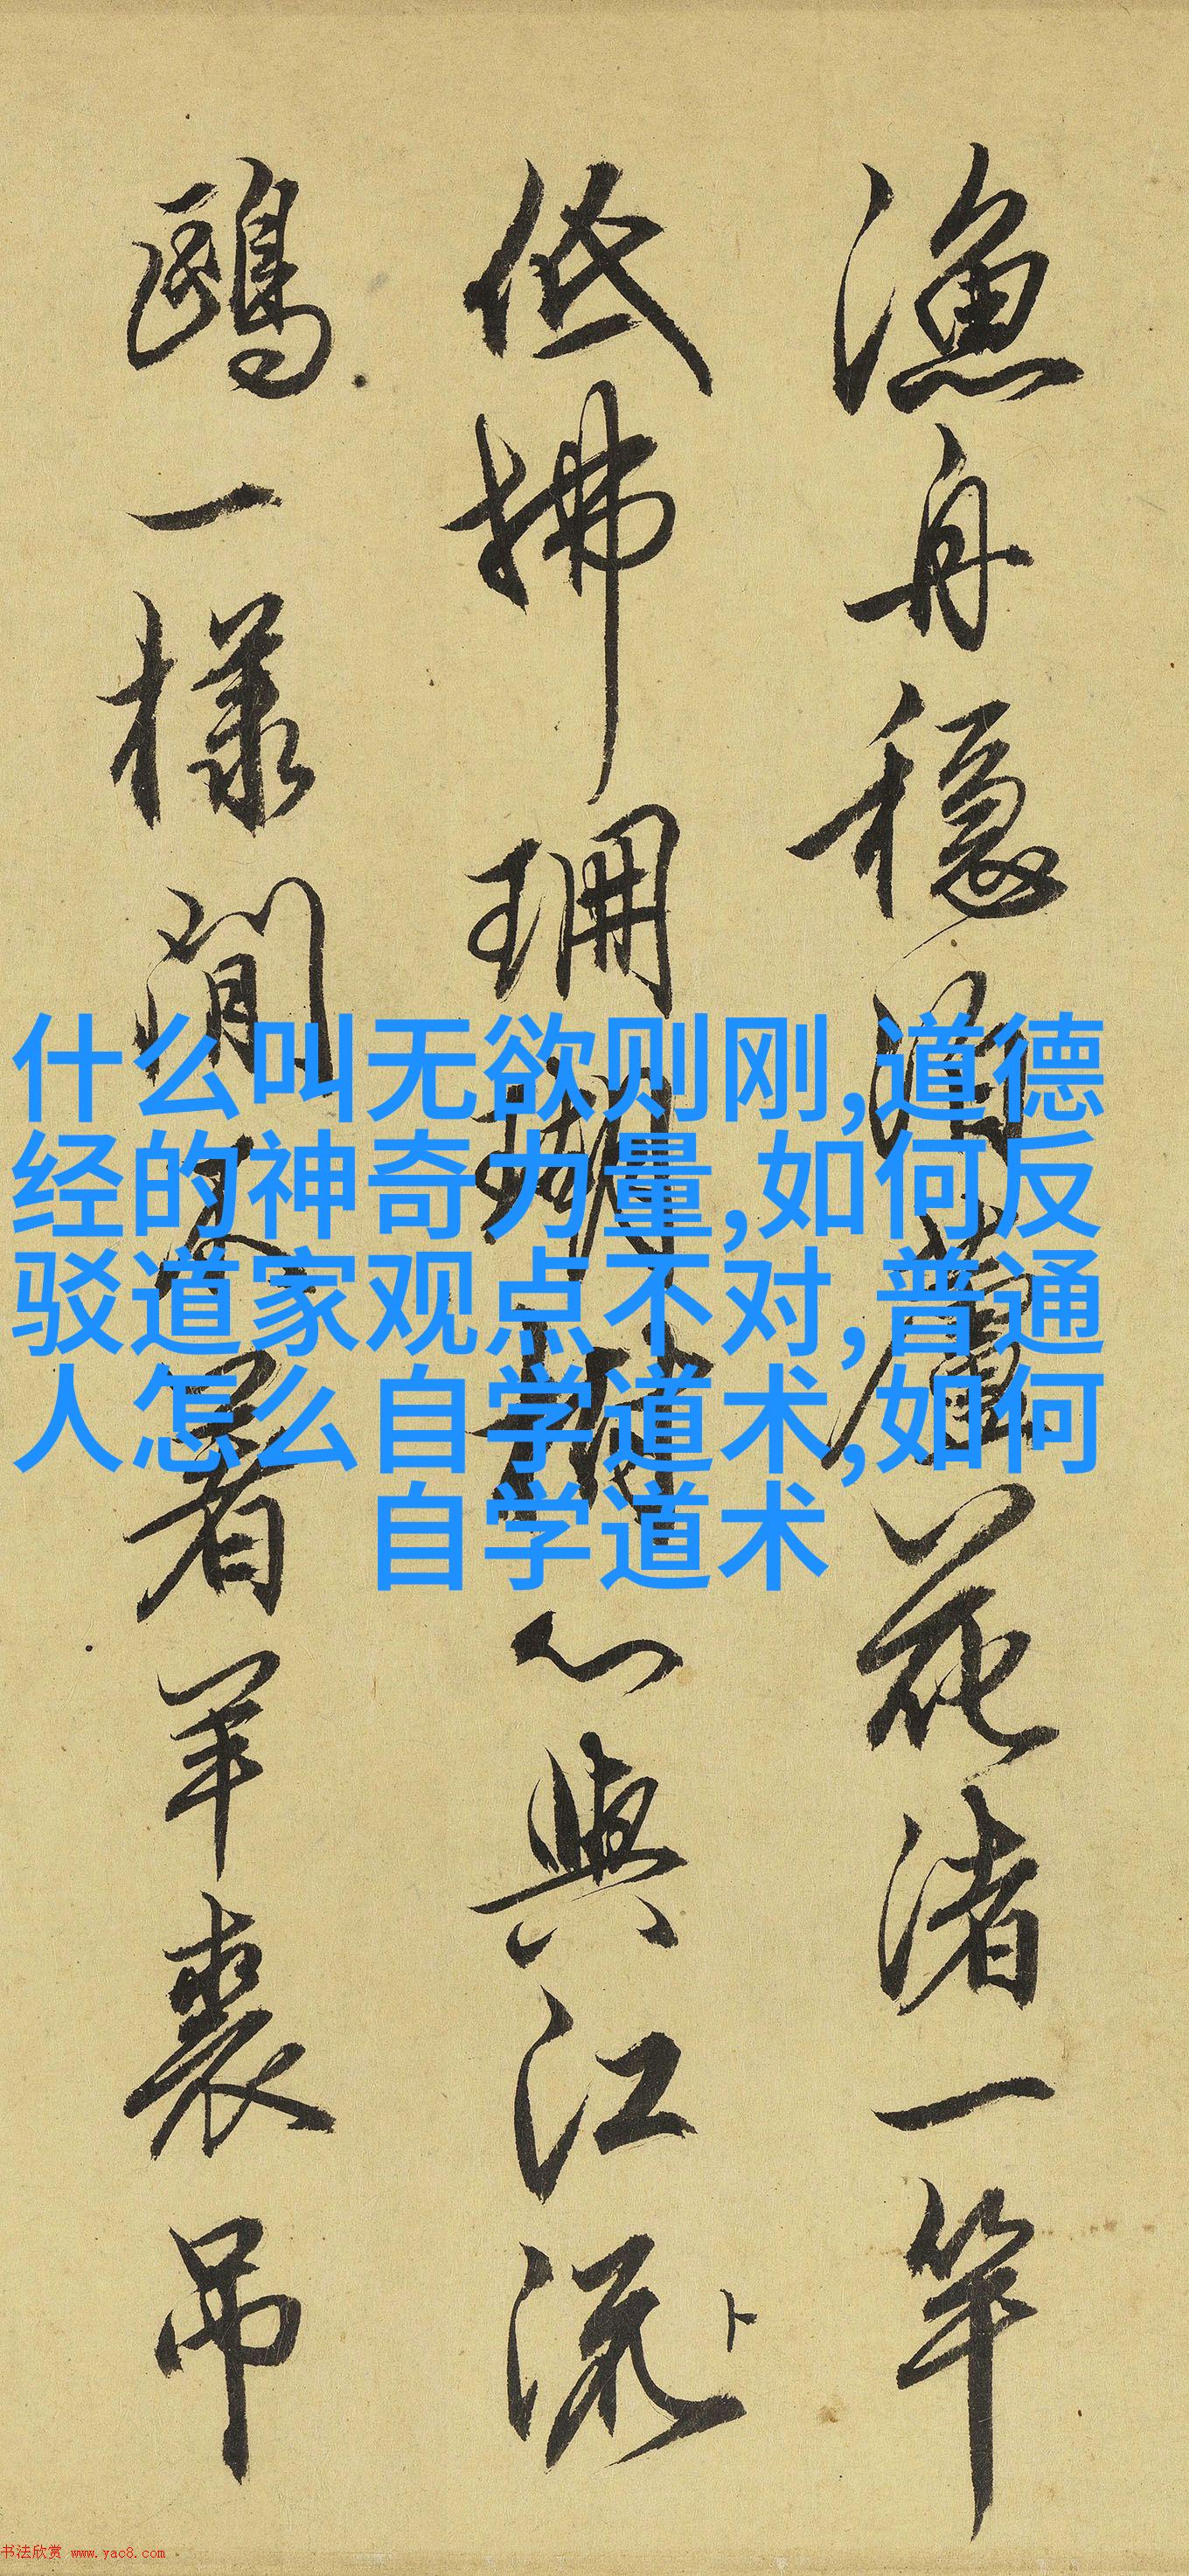 漁舟穩泊蘆花渚一竿
低拂珊瑚樹心與江流
鷗一樣閒不羊裘吊
什么叫无欲则刚,道德
经的神奇力量,如何反
驳道家观点不对,普通
人怎么自学道术,如何
自学道术
书法欣赏 www.yac8.com